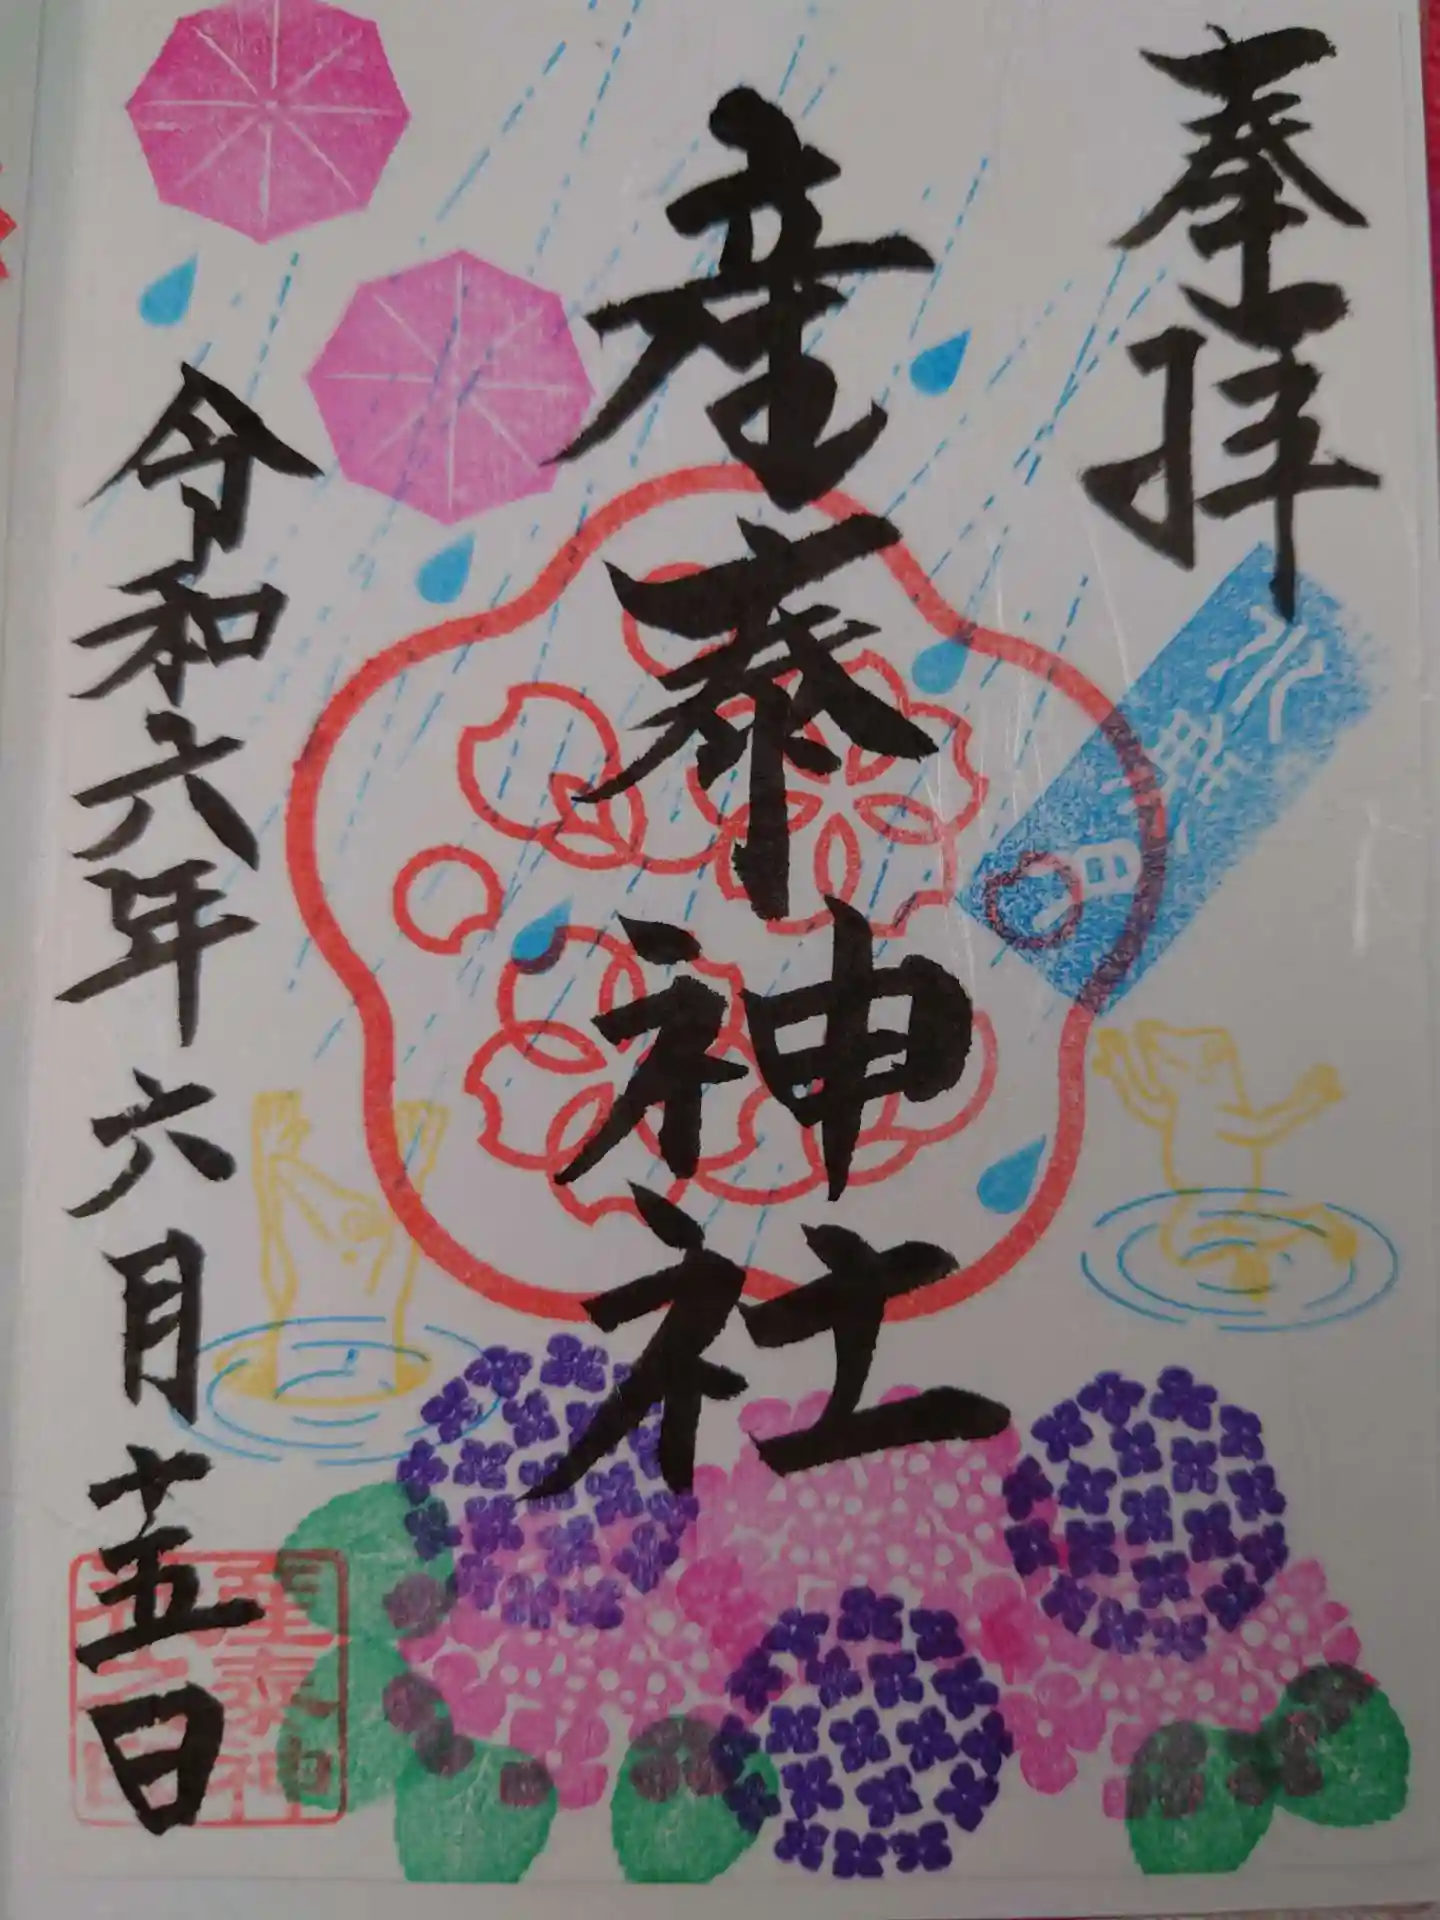 奉拝
産泰神社
令和六年六月十五日
産泰神